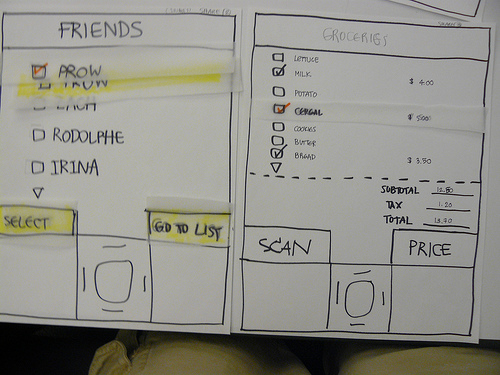 FRIENDS
PROW
ZACH
RODOLPHE
IRINA
SELECT
GO TO LIST
GROCERIES
LETTUCE
MILK $ 4.00
POTATO
CEREAL $ 5.00
COOKIES
BUTTER
BREAD $ 3.50
SUBTOTAL 12.50
TAX 1.20
TOTAL 13.70
SCAN
PRICE